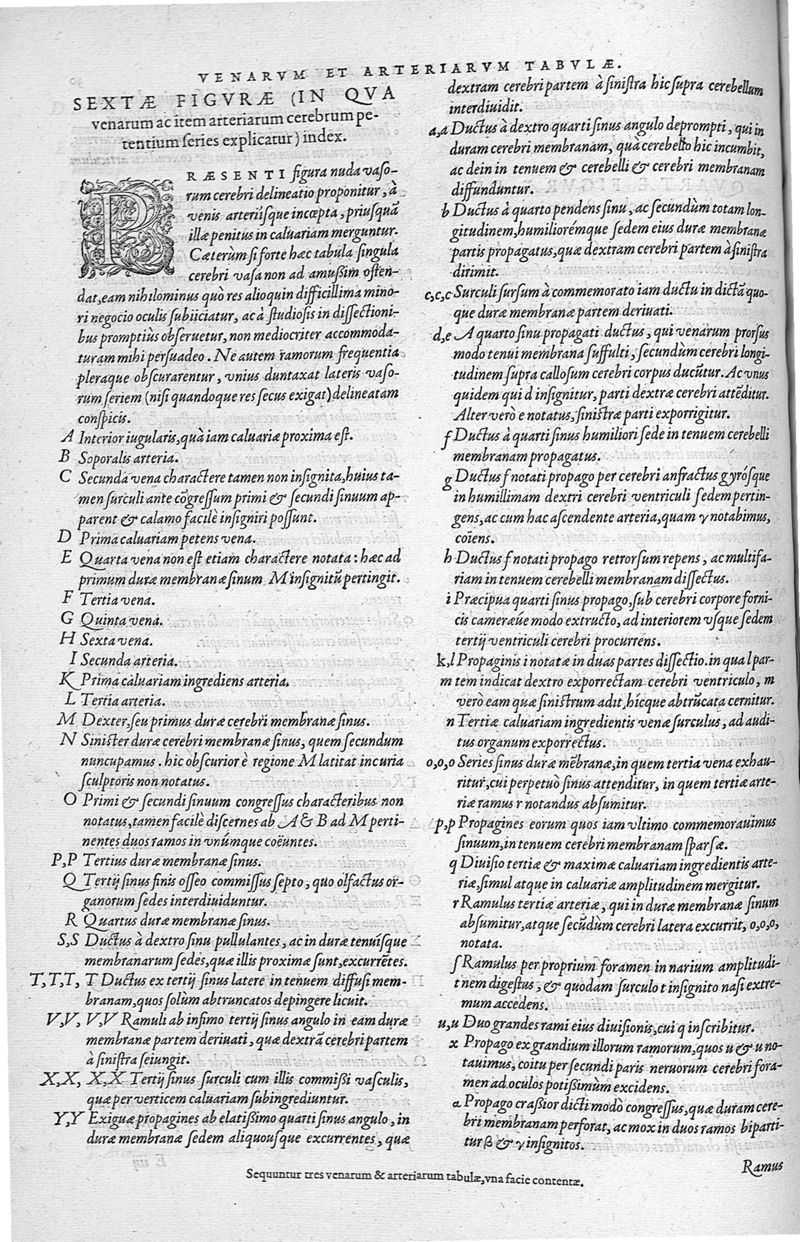 VENARVM ET ARTERIARVM TABVLÆ.
SEXTÆ FIGVRÆ (IN QVA
venarum ac item arteriarum cerebrum pe-
tentium series explicatur) index.
PRÆSENTI figura nuda vaso-
rum cerebri delineatio proponitur, à
venis arterijsque incœpta, priusquã
illæ penitus in caluariam merguntur.
Cæterum si forte hæc tabula singula
cerebri vasa non ad amussim osten-
dat, eam nihilominus quò res alioquin difficillima mino-
ri negocio oculis subijciatur, ac à studiosis in dissectioni-
bus promptiùs obseruetur, non mediocriter accommoda-
turam mihi persuadeo. Ne autem ramorum frequentia
pleraque obscurarentur, vnius duntaxat lateris vaso-
rum seriem (nisi quandoque res secus exigat) delineatam
conspicis.
A Interior iugularis, quà iam caluariæ proxima est.
B Soporalis arteria.
C Secunda vena charactere tamen non insignita, huius ta-
men surculi ante cõgressum primi & secundi sinuum ap-
parent & calamo facilè insigniri possunt.
D Prima caluariam petens vena.
E Quarta vena non est etiam charactere notata: hæc ad
primum duræ membranæ sinum M insignitũ pertingit.
F Tertia vena.
G Quinta vena.
H Sexta vena.
I Secunda arteria.
K Prima caluariam ingrediens arteria.
L Tertia arteria.
M Dexter, seu primus duræ cerebri membranæ sinus.
N Sinister duræ cerebri membranæ sinus, quem secundum
nuncupamus. hic obscurior è regione M latitat incuria
sculptoris non notatus.
O Primi & secundi sinuum congressus characteribus non
notatus, tamen facilè discernes ab A & B ad M perti-
nentes duos ramos in vnúmque coëuntes.
P, P Tertius duræ membranæ sinus.
Q Tertij sinus finis osseo commissus septo, quo olfactus or-
ganorum sedes interdiuiduntur.
R Quartus duræ membranæ sinus.
S, S Ductus à dextro sinu pullulantes, ac in duræ tenuísque
membranarum sedes, quæ illis proximæ sunt, excurrẽtes.
T, T, T, T Ductus ex tertij sinus latere in tenuem diffusi mem-
branam, quos solùm abtruncatos depingere licuit.
V, V, V, V Ramuli ab infimo tertij sinus angulo in eam duræ
membranæ partem deriuati, quæ dextrã cerebri partem
à sinistra seiungit.
X, X, X, X Tertij sinus surculi cum illis commissi vasculis,
quæ per verticem caluariam subingrediuntur.
Y, Y Exiguæ propagines ab elatissimo quarti sinus angulo, in
duræ membranæ sedem aliquousque excurrentes, quæ
dextram cerebri partem à sinistra hic supra cerebellum
interdiuidit.
a, a Ductus à dextro quarti sinus angulo deprompti, qui in
duram cerebri membranam, quà cerebello hic incumbit,
ac dein in tenuem & cerebelli & cerebri membranam
diffunduntur.
b Ductus à quarto pendens sinu, ac secundùm totam lon-
gitudinem, humiliorémque sedem eius duræ membranæ
partis propagatus, quæ dextram cerebri partem à sinistra
dirimit.
c, c, c Surculi sursum à commemorato iam ductu in dictã quo-
que duræ membranæ partem deriuati.
d, e A quarto sinu propagati ductus, qui venarum prorsus
modo tenui membrana suffulti, secundùm cerebri longi-
tudinem supra callosum cerebri corpus ducũtur. Ac vnus
quidem qui d insignitur, parti dextræ cerebri attẽditur.
Alter verò e notatus, sinistræ parti exporrigitur.
f Ductus à quarti sinus humiliori sede in tenuem cerebelli
membranam propagatus.
g Ductus f notati propago per cerebri anfractus gyrósque
in humillimam dextri cerebri ventriculi sedem pertin-
gens, ac cum hac ascendente arteria, quam γ notabimus,
coïens.
h Ductus f notati propago retrorsum repens, ac multifa-
riam in tenuem cerebelli membranam dissectus.
i Præcipua quarti sinus propago, sub cerebri corpore forni-
cis cameræúe modo extructo, ad interiorem vsque sedem
tertij ventriculi cerebri procurrens.
k, l Propaginis i notatæ in duas partes dissectio. in qua l par-
m tem indicat dextro exporrectam cerebri ventriculo, m
verò eam quæ sinistrum adit, hicque abtrũcata cernitur.
n Tertiæ caluariam ingredientis venæ surculus, ad audi-
tus organum exporrectus.
o, o, o Series sinus duræ mẽbranæ, in quem tertia vena exhau-
ritur, cui perpetuò sinus attenditur, in quem tertiæ arte-
riæ ramus r notandus absumitur.
p, p Propagines eorum quos iam vltimo commemorauimus
sinuum, in tenuem cerebri membranam sparsæ.
q Diuisio tertiæ & maximæ caluariam ingredientis arte-
riæ, simul atque in caluariæ amplitudinem mergitur.
r Ramulus tertiæ arteriæ, qui in duræ membranæ sinum
absumitur, atque secũdùm cerebri latera excurrit, o, o, o,
notata.
ſ Ramulus per proprium foramen in narium amplitudi-
t nem digestus, & quodam surculo t insignito nasi extre-
mum accedens.
u, u Duo grandes rami eius diuisionis, cui q inscribitur.
x Propago ex grandium illorum ramorum, quos u & u no-
tauimus, coitu per secundi paris neruorum cerebri fora-
men ad oculos potissimùm excidens.
α Propago crassior dicti modò congressus, quæ duram cere-
bri membranam perforat, ac mox in duos ramos biparti-
tur β & γ insignitos.
Ramus
Sequuntur tres venarum & arteriarum tabulæ, vna facie contentæ.